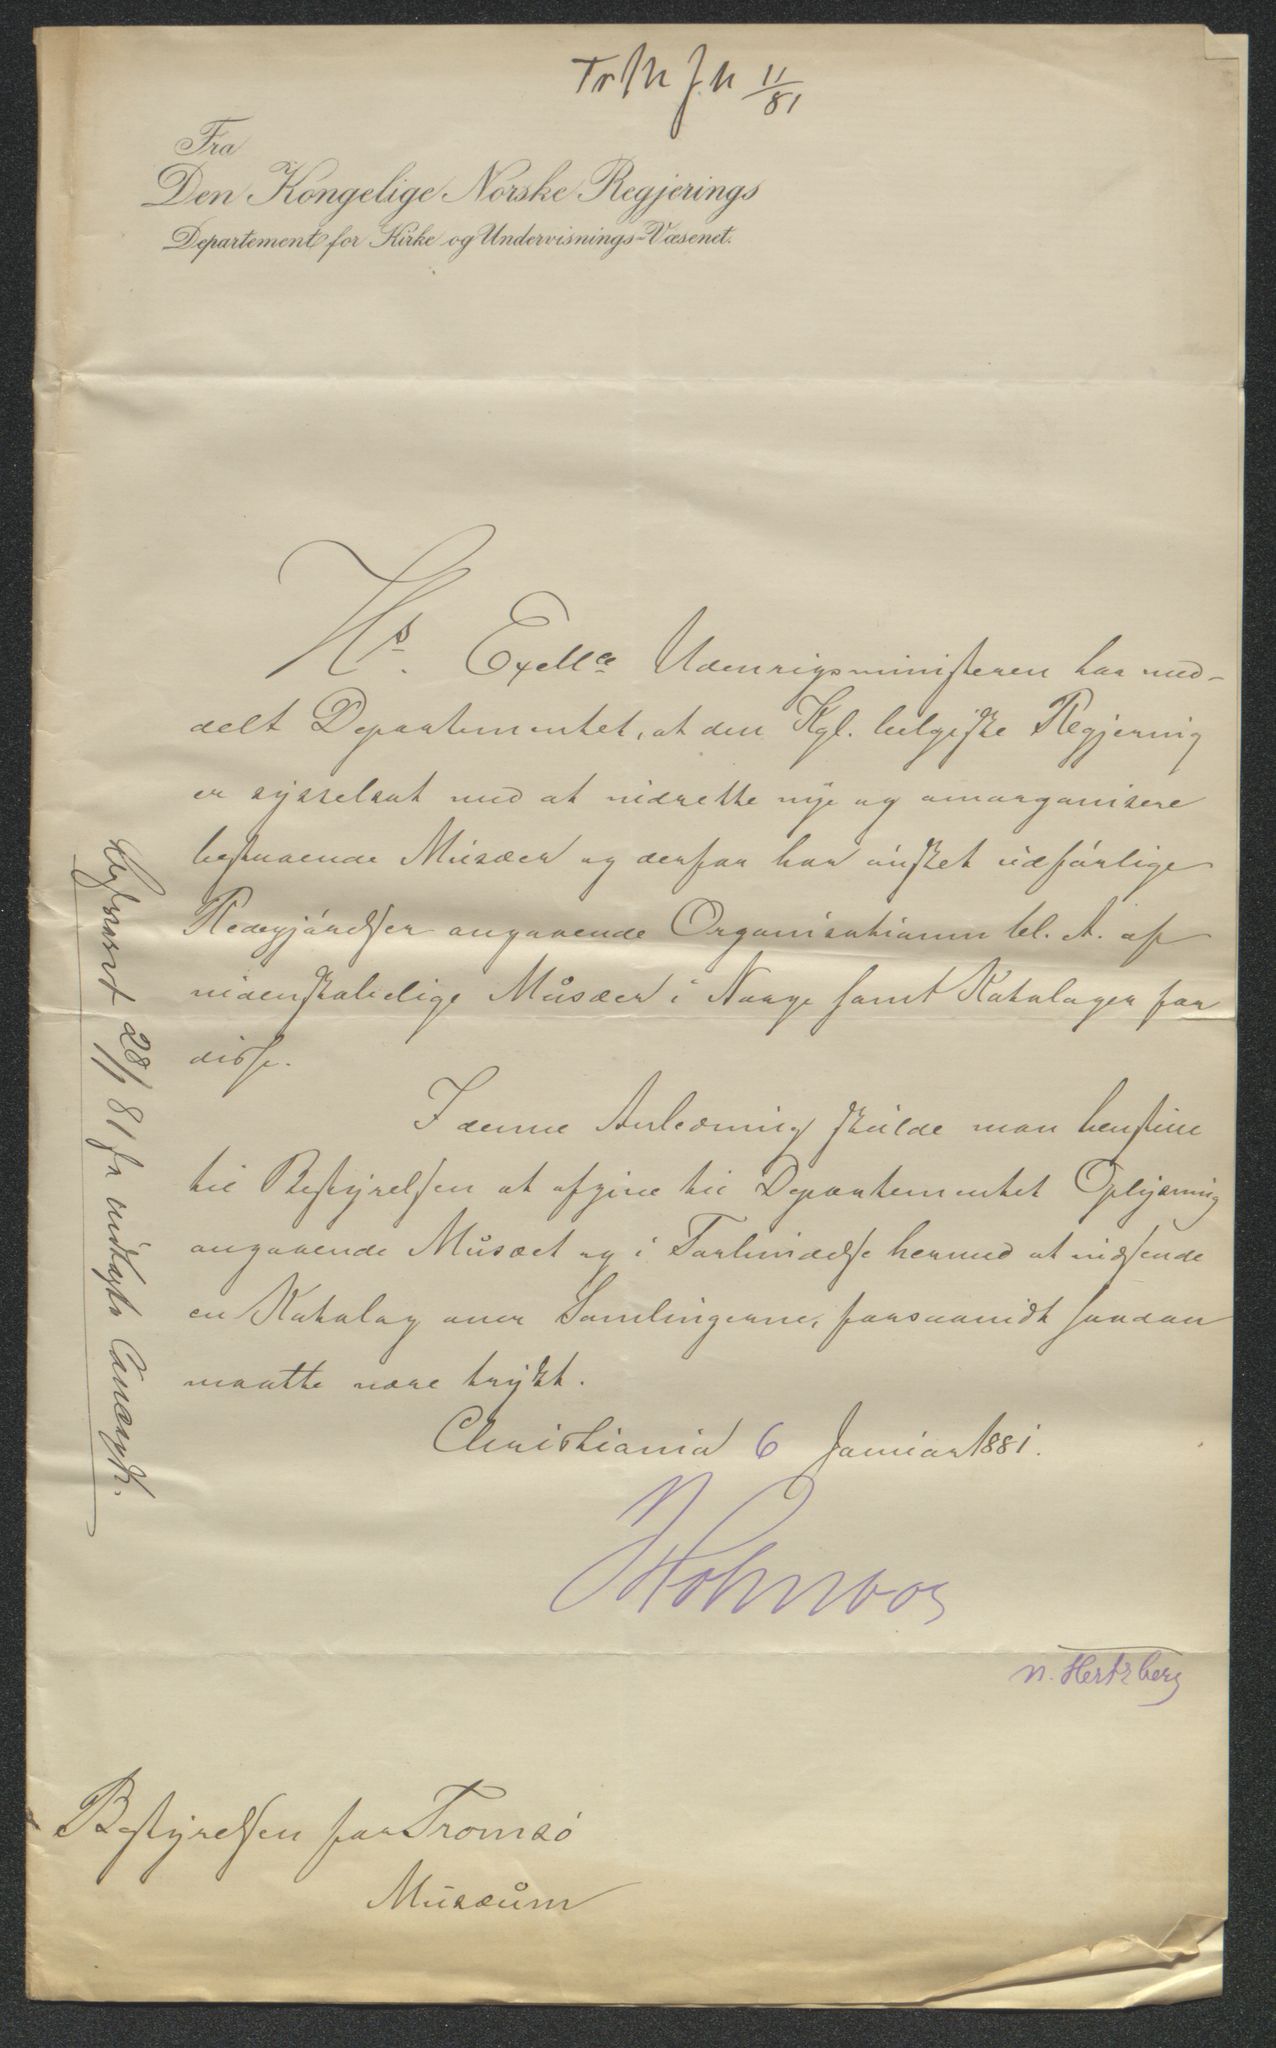 Tr M J. N 11/81
Fra
Den Kongelige Norske Regjerings
Departement for Kirke og Undervisnings-Væsenet.
Hs. Exellce Udenrigsministeren har med-
delt Departementet, at den Kgl. belgiske Regjering
er sysselsat med at indrette nye og omorganisere
bestaaende Musæer og derfor har ønsket udførlige
Redegjørelser angaaende Organisationen bl. A. af
videnskabelige Musæer i Norge samt Kataloger for
disse.
I denne Anledning skulde man henstille
til Bestyrelsen at afgive til Departementet Oplysning
angaaende Musæet og i Forbindelse hermed at indsende
en Katalog over Samlingerne, forsaavidt saadan
maatte være trykt.
Christiania 6 Januar 1881.
N. Hertzberg
Bestyrelsen for Tromsø
Musæum
28/1 81